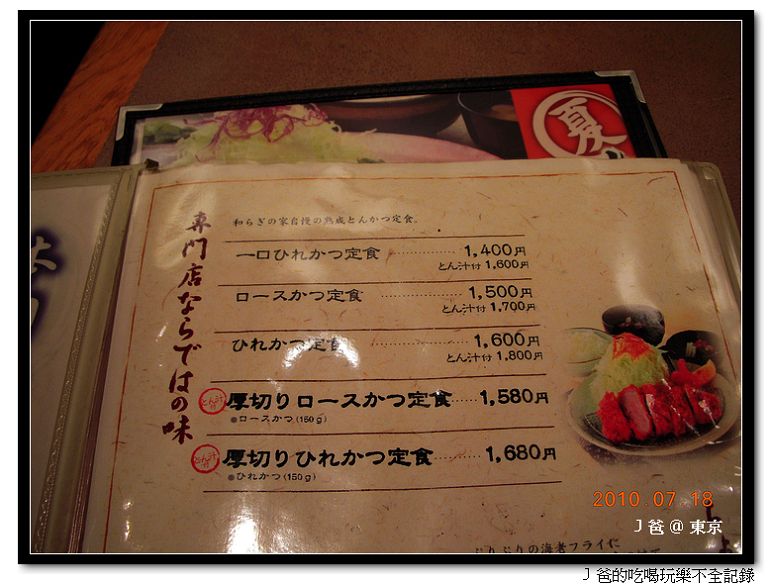 夏
専門店ならではの味
和らぎの家自慢の熟成とんかつ定食。
一口ひれかつ定食 ………… 1,400円
とん汁付 1,600円
ロースかつ定食 ………… 1,500円
とん汁付 1,700円
ひれかつ定食 ………… 1,600円
とん汁付 1,800円
とん汁付 厚切りロースかつ定食 …… 1,580円
●ロースかつ(160g)
とん汁付 厚切りひれかつ定食 …… 1,680円
●ひれかつ(150g)
ぷりぷりの海老フライに
2010.07.18
J 爸 @ 東京
J 爸的吃喝玩樂不全記錄